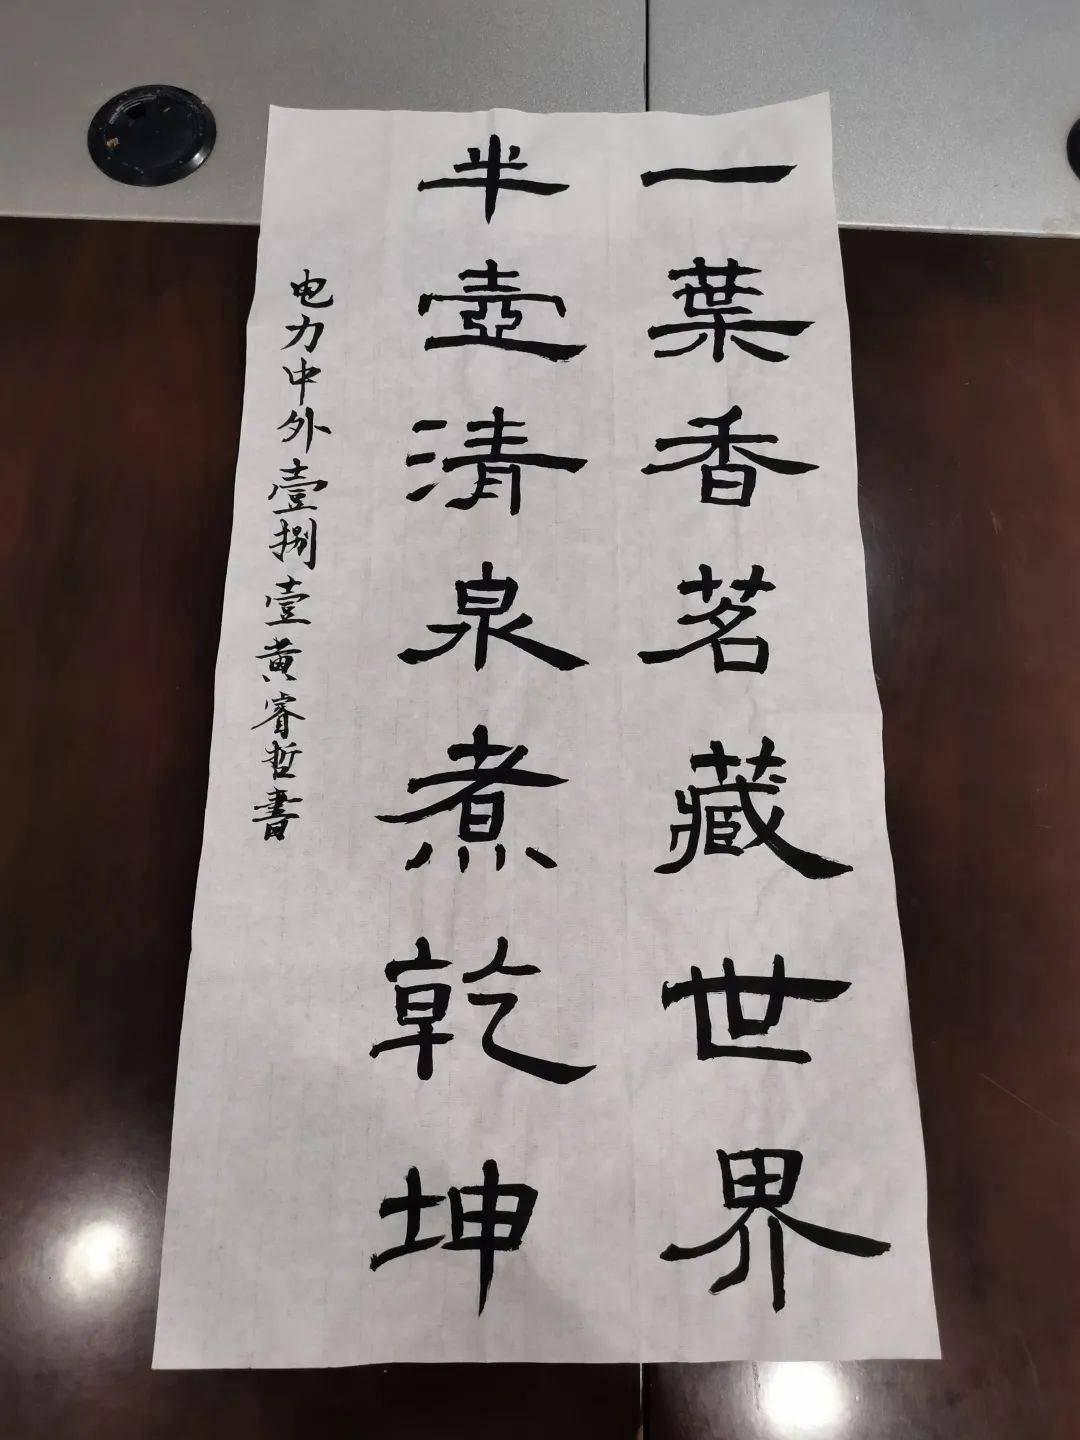 一葉香茗藏世界
半壺清泉煮乾坤
电力中外壹捌壹黄睿哲書